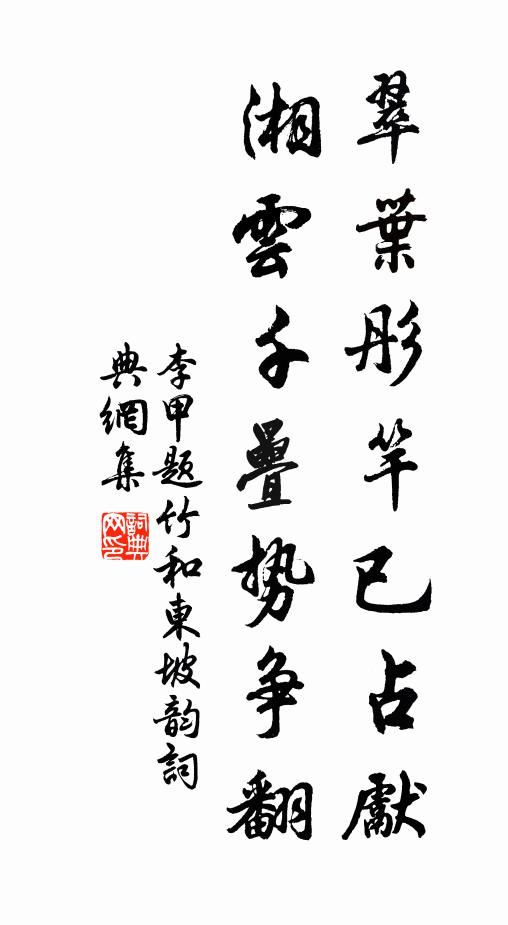 翠葉彤竿已占獻
湘雲千疊勢争翻
李甲题竹和東坡韵詞
典網集
詞典网印